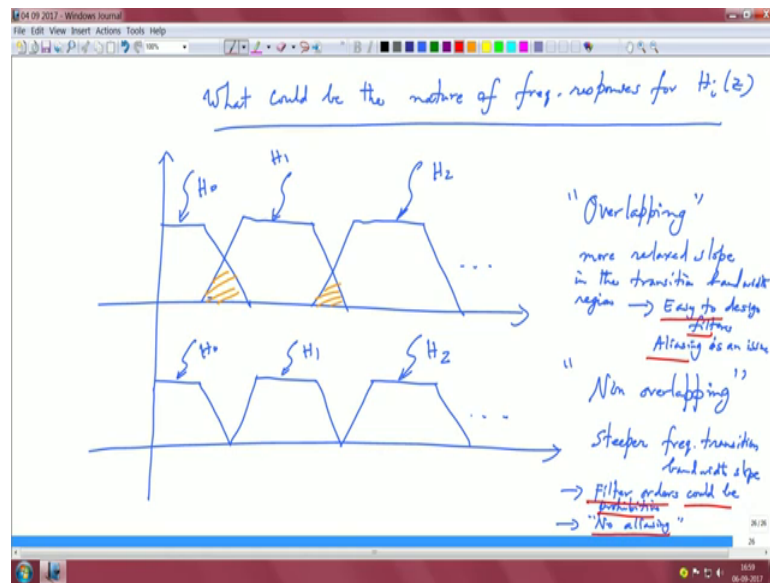 04 09 2017 - Windows Journal
File Edit View Insert Actions Tools Help
100%
B I
What could be the nature of freq. responses for Hi(z)
H0
H1
H2
...
"Overlapping"
more relaxed slope
in the transition bandwidth
region → Easy to design
filters
Aliasing is an issue
H0
H1
H2
...
"Non overlapping"
Steeper freq. transition
bandwidth slope
→ Filter orders could be
prohibitive
→ "No aliasing"
26/26
26
16:59
06-09-2017